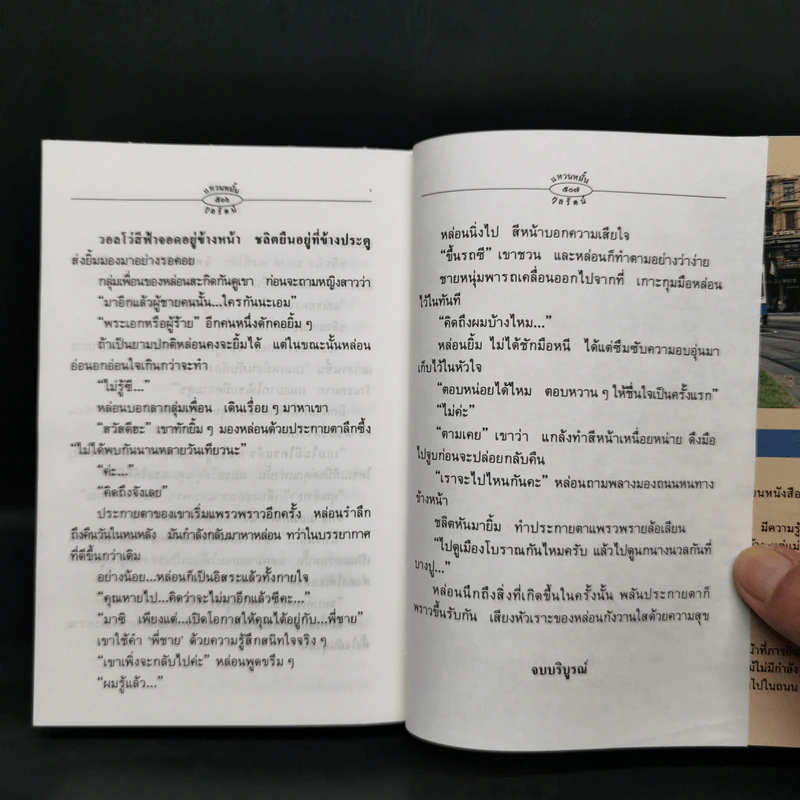 แหวนหมั้น
๕๐๖
วลรัตน์
วอลโว่สีฟ้าจอดอยู่ข้างหน้า ชลิตยืนอยู่ที่ข้างประตู
ส่งยิ้มมองมาอย่างรอคอย
กลุ่มเพื่อนของหล่อนสะกิดกันดูเขา ก่อนจะถามหญิงสาวว่า
“มาอีกแล้วผู้ชายคนนั้น...ใครกันนะเอม”
“พระเอกหรือผู้ร้าย” อีกคนหนึ่งดักคอยิ้ม ๆ
ถ้าเป็นยามปกติหล่อนคงจะยิ้มได้ แต่ในขณะนั้นหล่อน
อ่อนอกอ่อนใจเกินกว่าจะทำ
“ไม่รู้ซี...”
หล่อนบอกลากลุ่มเพื่อน เดินเรื่อย ๆ มาหาเขา
“สวัสดีฮะ” เขาทักยิ้ม ๆ มองหล่อนด้วยประกายตาลึกซึ้ง
“ไม่ได้พบกันนานหลายวันเทียวนะ”
“ค่ะ...”
“คิดถึงจังเลย”
ประกายตาของเขาเริ่มแพรวพราวอีกครั้ง หล่อนรำลึก
ถึงคืนวันในหนหลัง มันกำลังกลับมาหาหล่อน ทว่าในบรรยากาศ
ที่ดีขึ้นกว่าเดิม
อย่างน้อย...หล่อนก็เป็นอิสระแล้วทั้งกายใจ
“คุณหายไป...คิดว่าจะไม่มาอีกแล้วซีคะ...”
“มาซิ เพียงแต่...เปิดโอกาสให้คุณได้อยู่กับ...พี่ชาย”
เขาใช้คำ ‘พี่ชาย’ ด้วยความรู้สึกสนิทใจจริง ๆ
“เขาเพิ่งจะกลับไปค่ะ” หล่อนพูดขรึม ๆ
“ผมรู้แล้ว...”
แหวนหมั้น
๕๐๗
วลรัตน์
หล่อนนิ่งไป สีหน้าบอกความเสียใจ
“ขึ้นรถซี” เขาชวน และหล่อนก็ทำตามอย่างว่าง่าย
ชายหนุ่มพารถเคลื่อนออกไปจากที่ เกาะกุมมือหล่อน
ไว้ในทันที
“คิดถึงผมบ้างไหม...”
หล่อนยิ้ม ไม่ได้ชักมือหนี ได้แต่ซึมซับความอบอุ่นมา
เก็บไว้ในหัวใจ
“ตอบหน่อยได้ไหม ตอบหวาน ๆ ให้ชื่นใจเป็นครั้งแรก”
“ไม่ค่ะ”
“ตามเคย” เขาว่า แกล้งทำสีหน้าเหนื่อยหน่าย ดึงมือ
ไปจูบก่อนจะปล่อยกลับคืน
“เราจะไปไหนกันคะ” หล่อนถามพลางมองถนนหนทาง
ข้างหน้า
ชลิตหันมายิ้ม ทำประกายตาแพรวพรายล้อเลียน
“ไปดูเมืองโบราณกันไหมครับ แล้วไปดูนกนางนวลกันที่
บางปู...”
หล่อนนึกถึงสิ่งที่เกิดขึ้นในครั้งนั้น พลันประกายตาก็
พราวขึ้นรับกัน เสียงหัวเราะของหล่อนกังวานใสด้วยความสุข
จบบริบูรณ์
นหนังสือ
มีความรู้
น้าที่ภารกิจ
ม้ไม่มีกำลัง
ไปในถนน